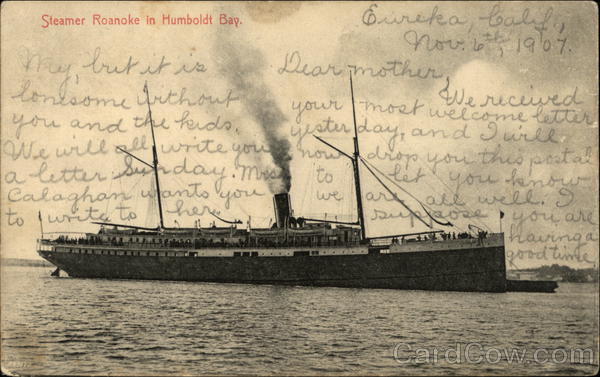 Steamer Roanoke in Humboldt Bay.
Eureka, Calif.,
Nov. 6th, 1907.
Dear mother,
We received
your most welcome letter
yesterday, and I will
now drop you this postal
to let you know
we are all well. I
suppose you are
having a
good time
My, but it is
lonesome without
you and the kids.
We will all write you
a letter Sunday. Mrs
Calaghan wants you
to write to her
CardCow.com